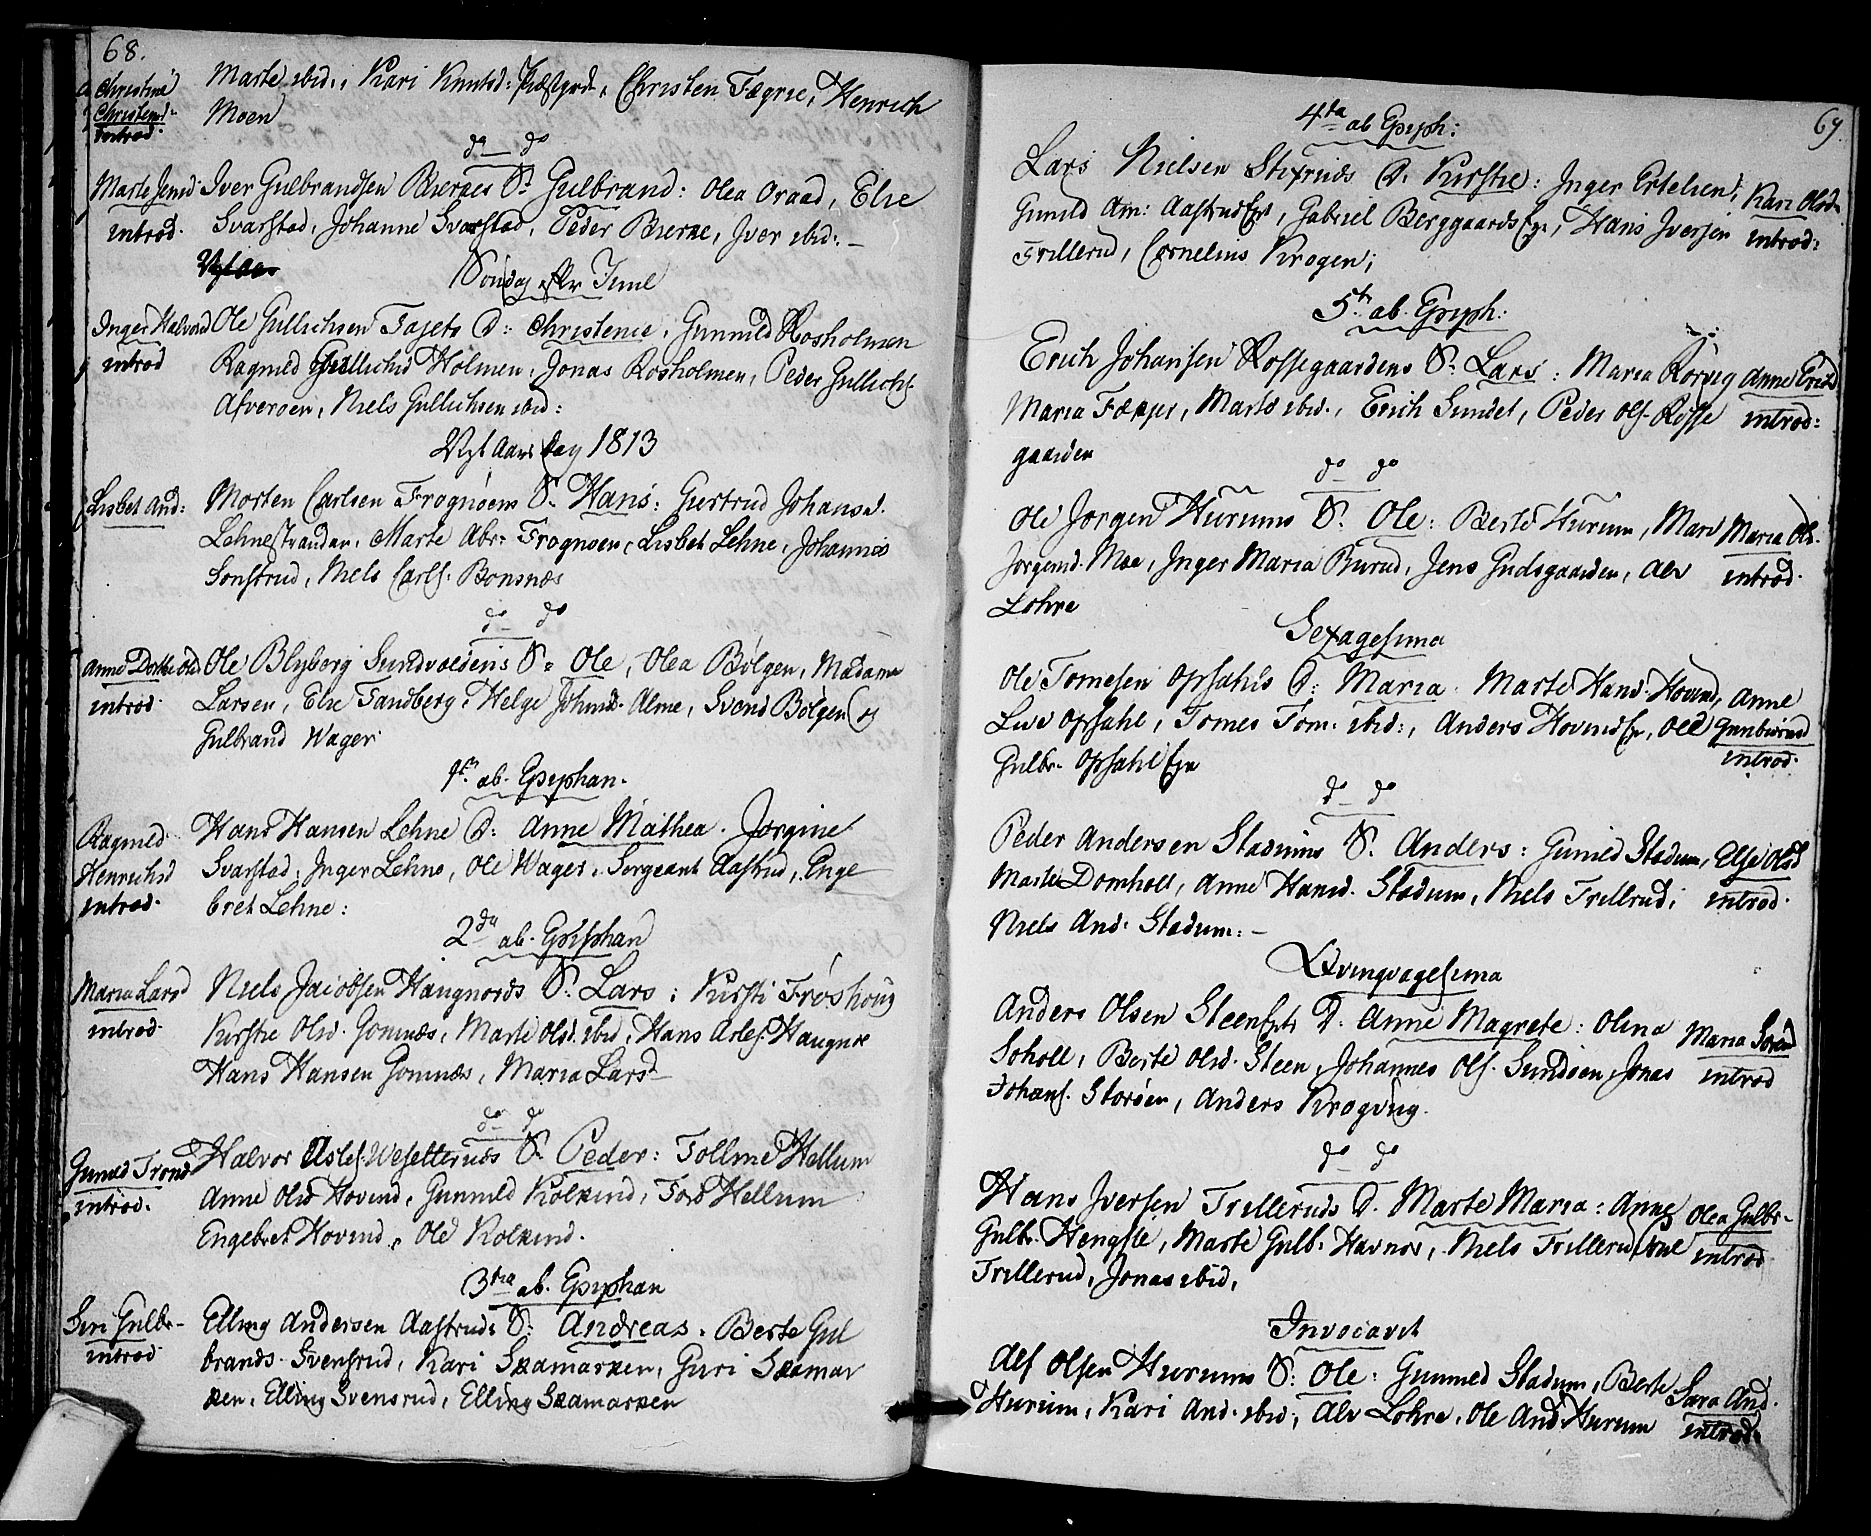 68.
Christine
Christens:
introd.
Marte ibid:, Kari Knutsd: Præstgrd, Christen Fægrie, Henrich
Moen
do — do
Marte Jensd
introd.
Iver Gulbrandsen Bierkes S. Gulbrand: Olea Oraad, Elie
Svarstad, Johanne Svarstad, Peder Bierke, Iver ibid: —
Søndag efter Juul
Inger Halvord
introd
Ole Gullichsen Fajets D: Christenie, Gunnild Rosholmen
Ragnild Gullichsd Holmen, Jonas Rosholmen, Peder Gullichs.
Afveroen, Niels Gullichsen ibid:
Nyt Aars Dag 1813
Lisbet And:
Morten Carlsen Frognøens S. Hans: Giertrud Johansd.
Lehnestranden, Marte Abr: Frognøen, Lisbet Lehne, Johannes
Sønsrud, Niels Carls. Bonsnæs
do — do
Anne Dorthe Olsd
introd.
Ole Blyberg Sundvoldens S. Ole, Olea Bølgen, Madame
Larsen, Elie Fandberg, Helge Johnsd. Alme, Svend Bølgen og
Gulbrand Wager.
1ste ab. Epiphan.
Ragnild
Henrichsd
introd.
Hans Hansen Lehne D: Anne Mathea. Jørgine
Svarstad, Inger Lehne, Ole Wager, Sergeant Aastrud, Enge
bret Lehne:
2da ab. Epiphan
Maria Larsd
introd.
Niels Jacobsen Haugnords S. Lars: Kirsti Frøshoug
Kirstie Olsd. Gomnæs, Marte Olsd. ibid, Hans Asles. Haugnor
Hans Hansen Gomnæs, Maria Larsd
do — do
Gunild Trond
introd.
Halvor Asles. Wesetteruds S. Peder: Tolline Hellum
Anne Olsd Hovind, Gunnild Kolkind, Tord Hellum
Engebret Hovind, Ole Kolkind.
3tia ab. Epiphan
Siri Gulbr-
introd.
Elling Andersen Aastruds S: Andreas. Berte Gul
brands. Svensrud, Kari Skamarken, Guri Skamar
ken, Elling Svensrud, Elling Skamarken
69.
4da ab Epiph:
Lars Nielsen Stixruds D. Kirstie: Inger Ertelien, Kari Olsd.
introd:
Gunild Am: Aastrud Eje, Gabriel Berggaards Eje, Hans Iversen
Trillerud, Cornelius Krogen;
5te ab. Epiph:
Erich Johansen Rossegaardens S. Lars: Maria Rørvig
Anne Erichsd
introd:
Maria Fækjer, Marte ibid., Erich Sundet, Peder Ols. Rosse
gaarden
do — do
Ole Jørgen Hurums S. Ole: Berte Hurum, Mari
Maria Ols.
introd.
Jørgensd. Moe, Inger Maria Burud, Jens Gudsgaarden, Alv
Lohre
Sexagesima
Ole Tomesen Opsahls D: Maria. Marte Hansd. Hovind,
Anne
Gunbiørnsd
introd.
Live Opsahl, Tomes Tom. ibid:, Anders Hovind Eje, Ole
Gulbr. Opsahl Eje
do — do
Peder Andersen Stadums S. Anders: Gunild Stadum,
Else Olsd
introd.
Marte Domholt, Anne Hansd. Stadum, Niels Trillrud;
Niels And. Stadum: —
Qvinqvagesima
Anders Olsen Steen Ejets D. Anne Magrete: Olina
Maria Sørensd
introd
Soholt, Berte Olsd. Steen, Johannes Ols. Sundøen, Jonas
Johans. Storøen, Anders Krogvig.
do — do
Hans Iversen Trilleruds D. Marte Maria: Anne
Olea Gulbr-
introd
Gulbr. Hengsle, Marte Gulb. Havnor, Niels Trillerud, Poul
Trillerud, Jonas ibid,
Invocavit
Alf Olsen Hurums S: Ole: Gunnild Stadum, Berte
Sara And.
introd.
Hurum, Kari And. ibid; Alv Lohre, Ole And. Hurum